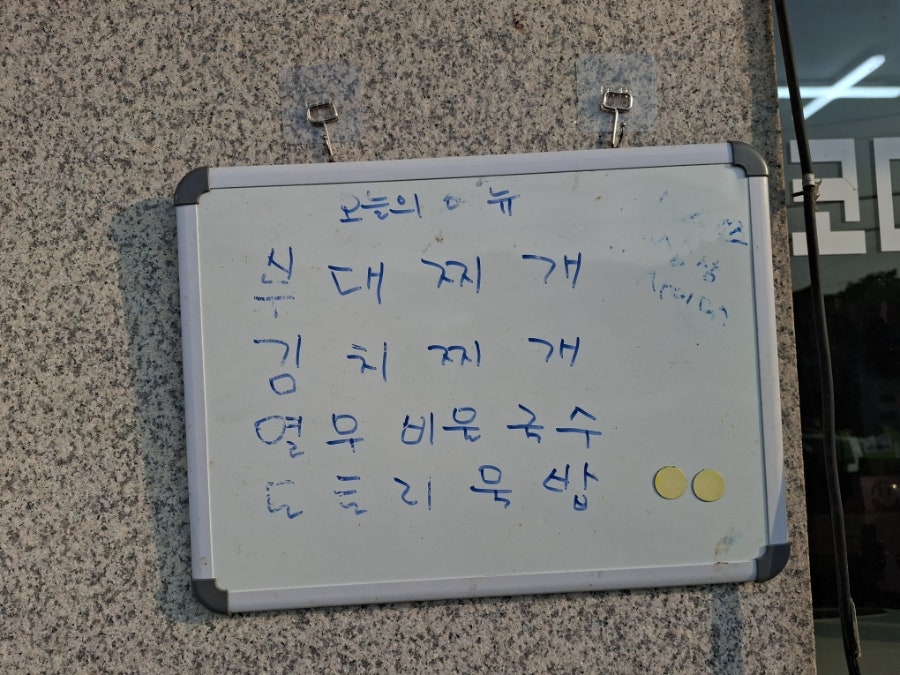 오늘의 메뉴
부대찌개
김치찌개
열무비빔국수
도토리묵밥